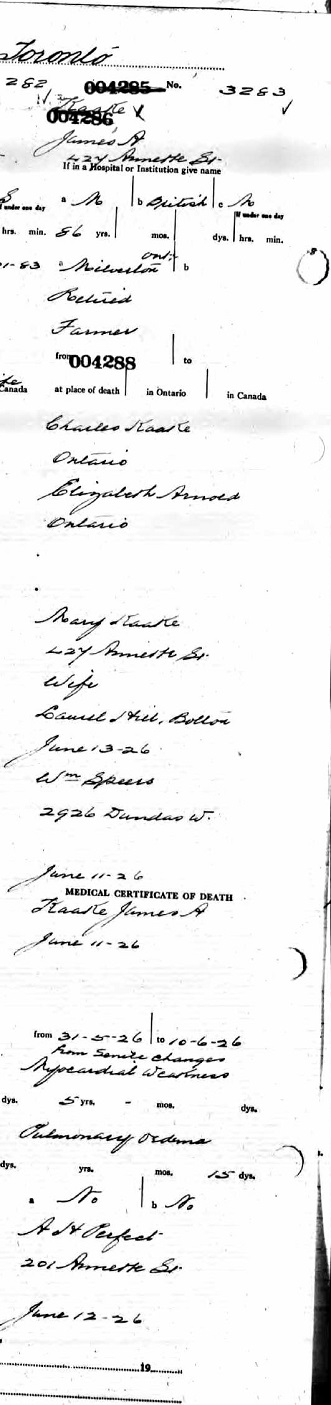 Toronto
282 004285 No. 3283
Kaake
004286
James A
427 Annette St.
If in a Hospital or Institution give name
a M b British c M
If under one day If under one day
hrs. min. 86 yrs. mos. dys. hrs. min.
1-83 a Milverton Ont. b
Retired
Farmer
from 004288 to
Canada at place of death in Ontario in Canada
Charles Kaake
Ontario
Elizabeth Arnold
Ontario
Mary Kaake
427 Annette St.
Wife
Laurel Hill, Bolton
June 13-26
Wm Speers
2926 Dundas W.
June 11-26
MEDICAL CERTIFICATE OF DEATH
Kaake James A
June 11-26
from 31-5-26 to 10-6-26
from Senile changes
Myocardial Weakness
dys. 5 yrs. - mos. dys.
Pulmonary Oedema
dys. yrs. mos. 15 dys.
a No b No
A H Perfect
201 Annette St.
June 12-26
19